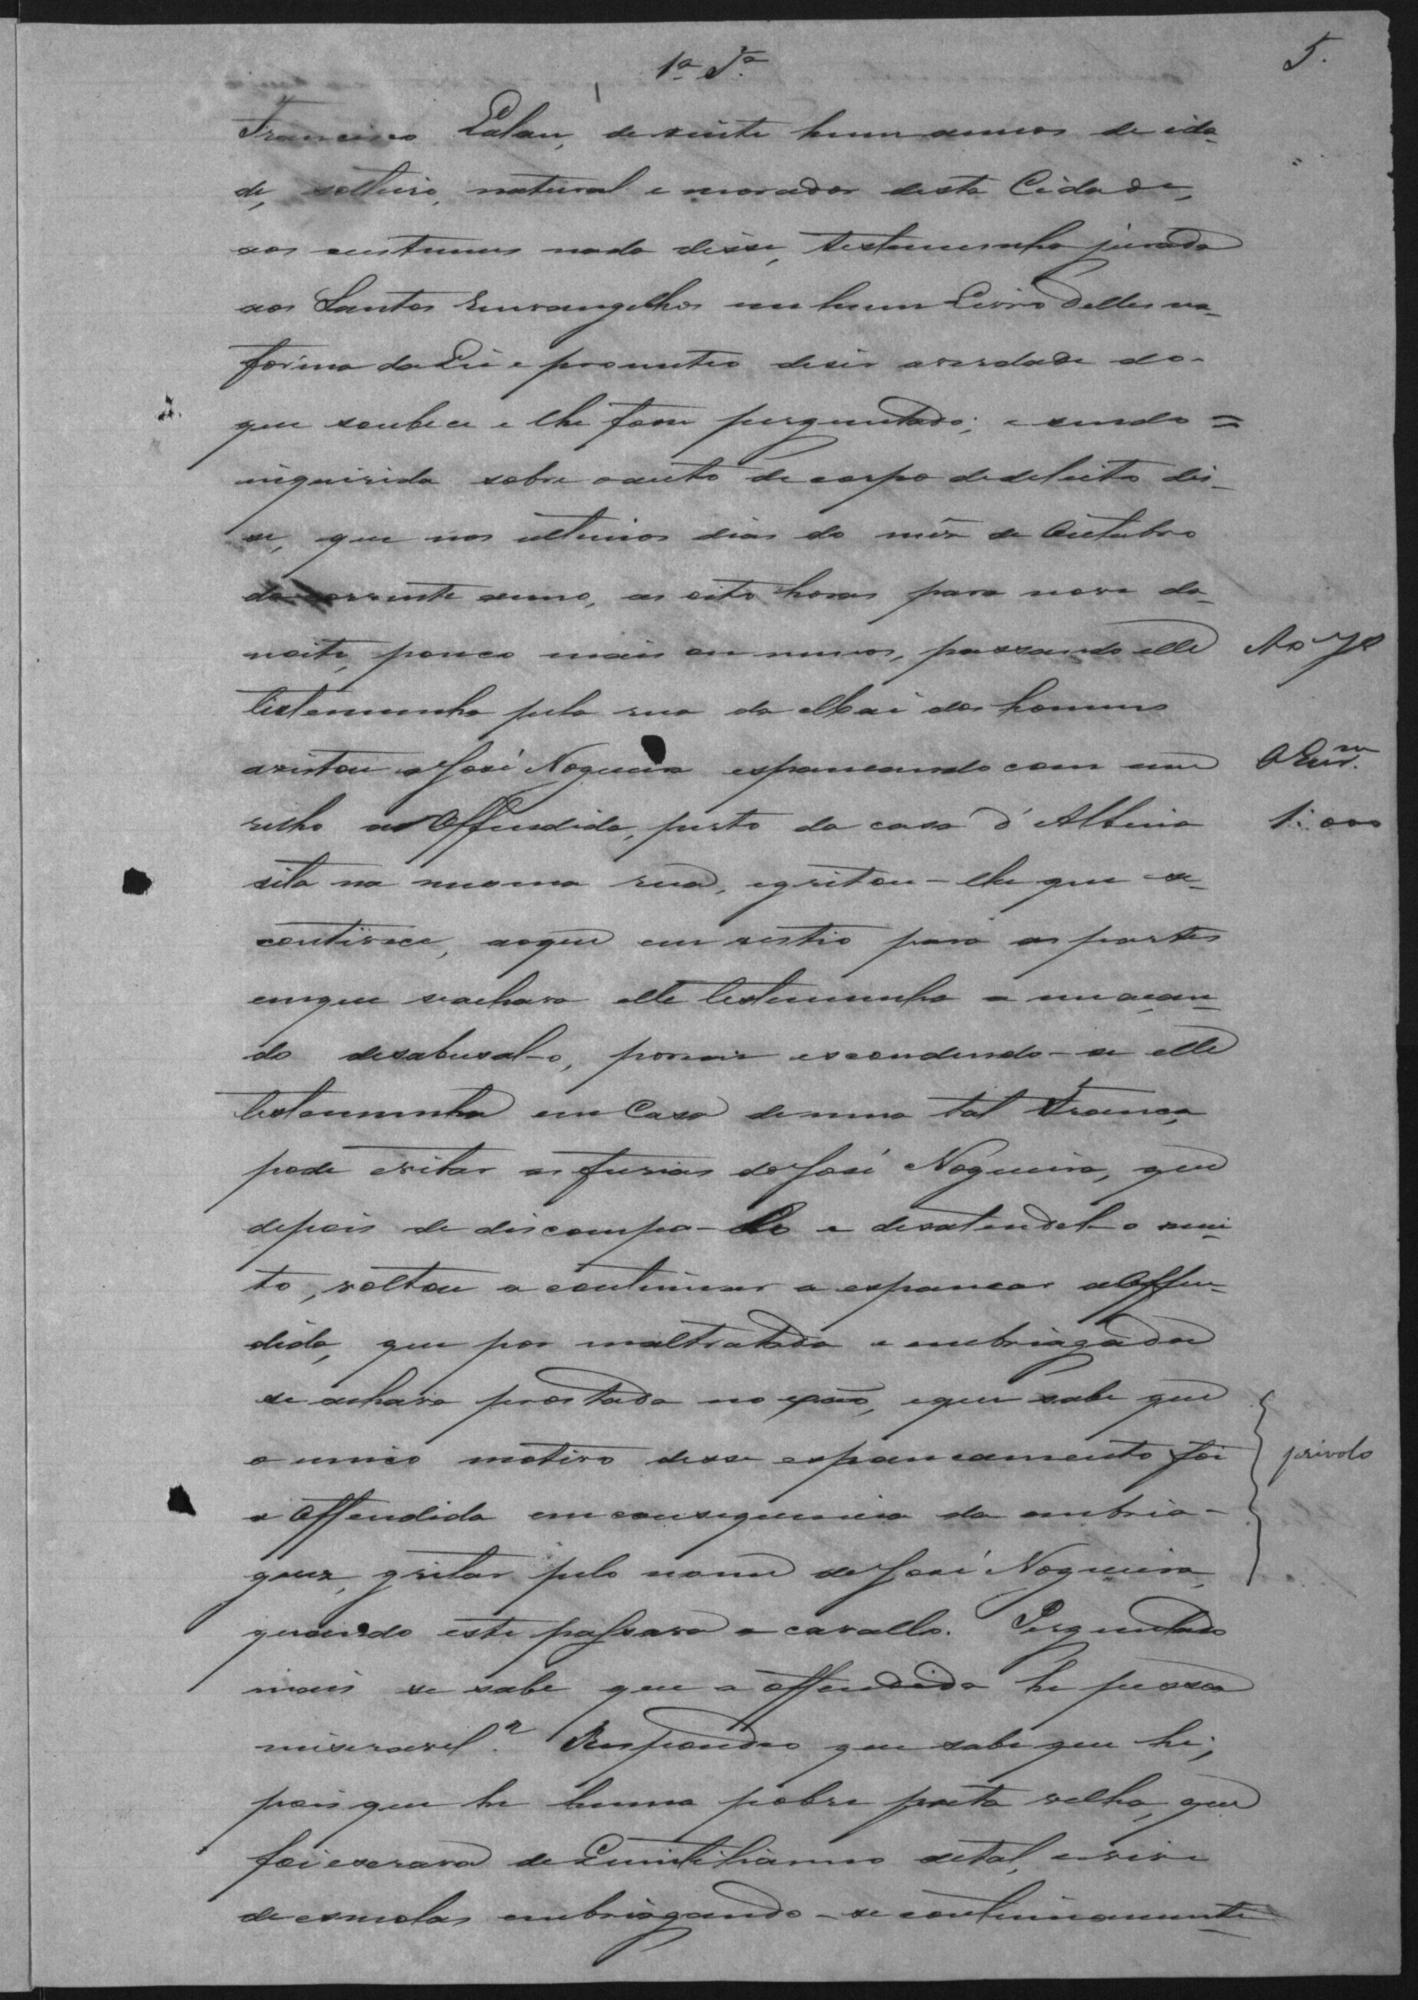 1ª Tª
5.
Francisco de vinte hum annos de ida-
de, solteiro, natural e morador desta Cidade,
aos custumes nada disse, testemunha jurada
aos Santos Euvangelhos em hum Livro delles na
forma da Lei e prometeo diser a verdade do-
que soubece e lhe fosse perguntado; e sendo =
inquirida sobre o auto de corpo de delicto dis-
se, que nos ultimos dias do mêz de Outubro
do corrente anno, as oito horas para nove da
noite, pouco mais ou menos, passando elle
testemunha pela rua da Mai dos homens
avistou a José Nogueira espancando com um
relho a Offendida, perto da casa d'Albina
sita na mesma rua, e gritou-lhe que se-
contivece, aoque em vestio para as partes
emque se achava elle testemunha a meaçan-
do desabusal-o, porem escondendo-se elle
testemunha em Casa de uma tal França,
pode evitar as furias de José Nogueira, que
depois de discompo-lo e desatendel-o mui-
to, voltou a continuar a espancar a Offen-
dida, que por maltratada e embriagada
se achava prostada no xão, e que sabe que
o unico motivo desse espancamento foi
a Offendida em consequencia da embria-
guez, gritar pelo nome de José Nogueira,
quando este passava a cavallo. Perguntado
mais se sabe que a offendida he pessoa
miseravel? Respondeo que sabe que he;
pois que he huma pobre preta velha, que
foi escrava de Emiliano de tal, e vive
de esmolas embriagando-se continuamente
Ao Jº
O Eivm.
1:000